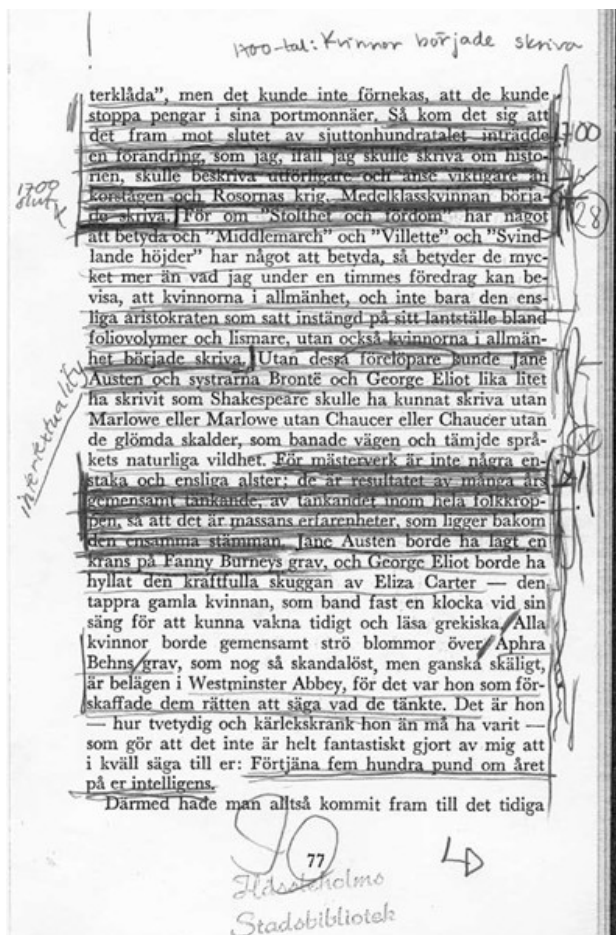 1700-tal: Kvinnor började skriva
terklåda”, men det kunde inte förnekas, att de kunde
stoppa pengar i sina portmonnäer. Så kom det sig att
det fram mot slutet av sjuttonhundratalet inträdde
1700
en förändring, som jag, ifall jag skulle skriva om histo-
rien, skulle beskriva utförligare och anse viktigare än
1700
slut
korstågen och Rosornas krig. Medelklasskvinnan börja-
de skriva. För om ”Stolthet och fördom” har något
28
att betyda och ”Middlemarch” och ”Villette” och ”Svind-
lande höjder” har något att betyda, så betyder de myc-
ket mer än vad jag under en timmes föredrag kan be-
visa, att kvinnorna i allmänhet, och inte bara den ens-
liga aristokraten som satt instängd på sitt lantställe bland
foliovolymer och lismare, utan också kvinnorna i allmän-
het började skriva. Utan dessa förelöpare kunde Jane
Austen och systrarna Brontë och George Eliot lika litet
ha skrivit som Shakespeare skulle ha kunnat skriva utan
Marlowe eller Marlowe utan Chaucer eller Chaucer utan
de glömda skalder, som banade vägen och tämjde språ-
intertextuality
kets naturliga vildhet. För mästerverk är inte några en-
staka och ensliga alster; de är resultatet av många års
gemensamt tänkande, av tänkandet inom hela folkkrop-
pen, så att det är massans erfarenheter, som ligger bakom
den ensamma stämman. Jane Austen borde ha lagt en
krans på Fanny Burneys grav, och George Eliot borde ha
hyllat den kraftfulla skuggan av Eliza Carter — den
tappra gamla kvinnan, som band fast en klocka vid sin
säng för att kunna vakna tidigt och läsa grekiska. Alla
kvinnor borde gemensamt strö blommor över Aphra
Behns grav, som nog så skandalöst, men ganska skäligt,
är belägen i Westminster Abbey, för det var hon som för-
skaffade dem rätten att säga vad de tänkte. Det är hon
— hur tvetydig och kärlekskrank hon än må ha varit —
som gör att det inte är helt fantastiskt gjort av mig att
i kväll säga till er: Förtjäna fem hundra pund om året
på er intelligens.
Därmed hade man alltså kommit fram till det tidiga
77
Stadsbibliotek